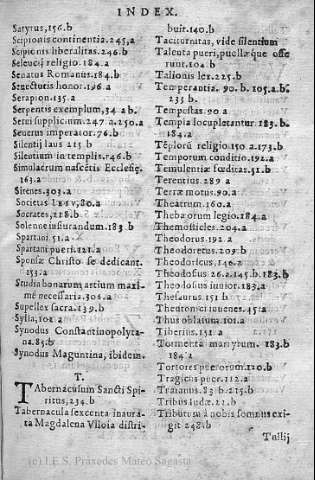 INDEX.
Satyrus, 156.b
Scipionis continentia. 245,a
Scipionis liberalitas. 246.b
Seleucij religio. 184.a
Senatus Romanus. 184.b.
Senectutis honor. 196.a
Serapion. 135.a
Serpentis exemplum, 34 ab.
Serui supplicium. 247 a. 250.a
Seuerus imperator. 76.b.
Silentij laus 215 b
Silentium in templis. 146.b
Simulacrum nascētis Ecclesię.
163.a
Sirenes. 303.a
Societas Iesv, 80.a
Socrates, 218.b
Solenne iusiurandum. 183 b
Spartani. 51.a
Spartani pueri. 121.a
Sponsæ Christo se dedicant.
153.a
Studia bonarum artium maxi-
mè necessaria. 305.a
Supellex sacra. 139.b
Sylla, 102 a
Synodus Constantinopolyta-
na. 85.b
Synodus Maguntina, ibidem.
T.
TAbernaculum Sancti Spi-
ritus, 234.b
Tabernacula sexcenta inaura-
ta Magdalena Vlloia distri-
buit. 140.b
Taciturnitas, vide silentium
Talenta pueri, puellæque offe
runt. 104.b
Talionis lex. 225.b
Temperantia. 90.b. 105.a.b.
233 b.
Tempestas. 90.a
Templa locupletantur. 183.b.
184.a
Tēplorū religio 150 a. 173.b
Temporum conditio. 192.a
Temulentiæ fœditas. 31.b
Terentius. 289 a
Terræ motus. 90.a
Theatrum. 160.a
Thebæorum legio. 184.a
Themosticles. 204.a
Theodorus. 192.a
Theodoretus. 209.b
Theodoricus. 146.a
Theodosius 26.a. 145.b. 183.b
Theodosius iunior. 183.a
Thesaurus. 151 b
Thessronici iuuenes. 45.a
Thus oblatum. 101.a
Tiberius. 151 a
Tormenta martyrum. 183.b
184 a
Tortores puerorum. 120.b
Tragicus puer. 112.a
Traianus. 83 b. 215.b
Tribus Iudæ. 21.b
Tributum à nobis somnus exi-
git 248.b
Tullij
(c) I.E.S. Práxedes Mateo Sagasta